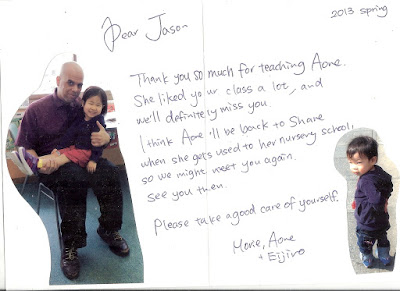 2013 spring
Dear Jason
Thank you so much for teaching Aone.
She liked your class a lot, and
we'll definitely miss you.
I think Aone 'll be back to Share
when she gets used to her nursery school,
so we might meet you again.
see you then.
Please take a good care of yourself.
Aone
+ Eijiro